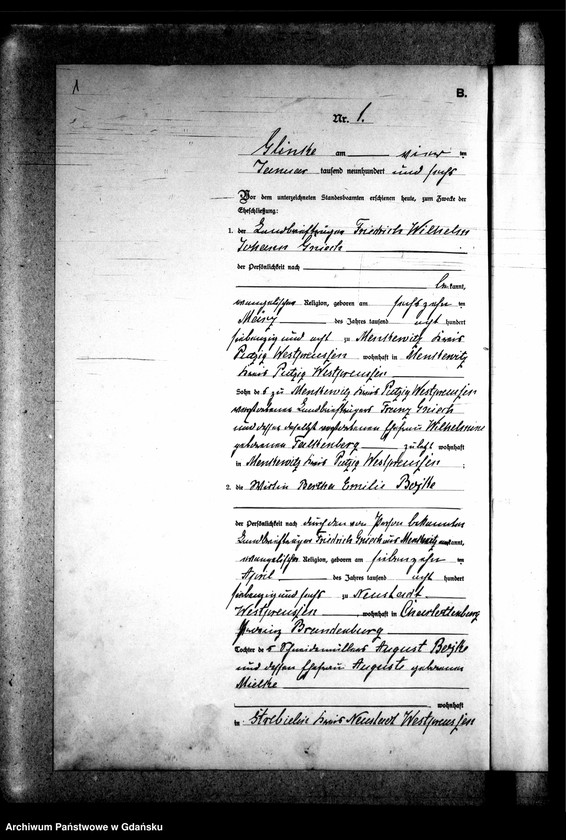 1
B.
Nr. 1.
Glinke am vier ten
Januar tausend neunhundert und sechs
Vor dem unterzeichneten Standesbeamten erschienen heute, zum Zwecke der
Eheschließung:
1. der Landbriefträger Friedrich Wilhelm
Johann Gniech
der Persönlichkeit nach
be kannt,
evangelischer Religion, geboren am sechszehn ten
März des Jahres tausend acht hundert
siebenzig und acht zu Menkewitz Kreis
Putzig Westpreussen wohnhaft in Menkewitz
Kreis Putzig Westpreussen
Sohn des zu Menkewitz Kreis Putzig Westpreussen
verstorbenen Landbriefträgers Franz Gniech
und dessen daselbst verstorbenen Ehefrau Wilhelmine
geborenen Falkenberg zuletzt wohnhaft
in Menkewitz Kreis Putzig Westpreussen ;
2. die Wirtin Bertha Emilie Bojke
der Persönlichkeit nach durch den von Person bekannten
Landbriefträger Friedrich Gniech aus Menkewitz anerkannt,
evangelischer Religion, geboren am siebenzehn ten
April des Jahres tausend acht hundert
siebenzig und sechs zu Neustadt
Westpreussen , wohnhaft in Charlottenburg
Provinz Brandenburg
Tochter des Schneidemüllers August Bojke
und dessen Ehefrau Auguste geborenen
Mielke
wohnhaft
in Strebielin Kreis Neustadt Westpreussen
Archiwum Państwowe w Gdańsku